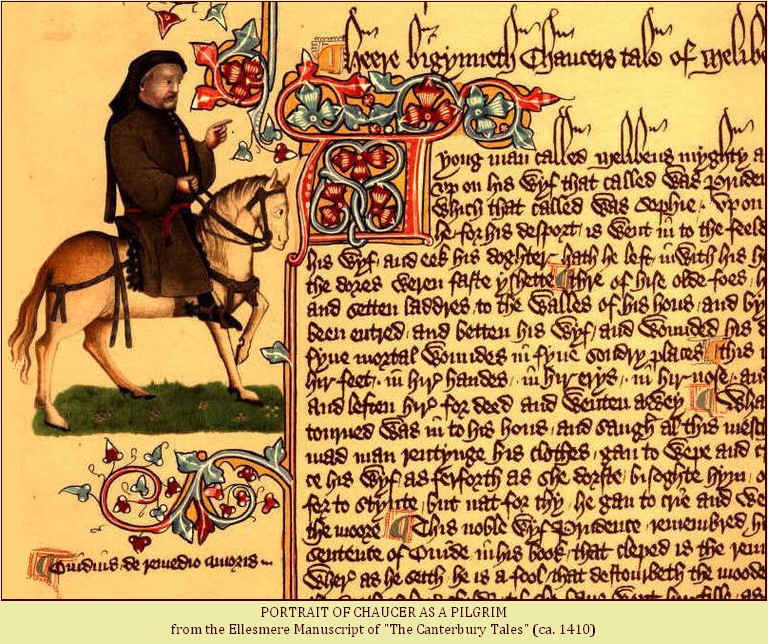 Heere bigynneth Chaucers tale of Melibe
A yong man called Melibeus myghty a
vp on his wyf that called was Pruden
which that called was Sophie Vpon
he for his desport is went in to the feeld
his wyf and eek his doghter hath he left inwith his h
the dores weren faste yshette thre of hise olde foes h
and setten laddres to the walles of his hous and by
been entred and betten his wyf and wounded his d
fyue mortal woundes in fyue sondry places this i
hir feet in hir handes in hir erys in hir nose an
and leften hir for deed and wenten awey Wha
tourned was in to his hous and saugh al this mesc
mad man rentynge his clothes gan to wepe and c
ce his wyf as ferforth as she dorste bisoghte hym
for to stynte but nat for thy he gan to crie and we
the moore This noble wyf Prudence remembred h
sentence of Ouide in his book that cleped is the rem
wher as he seith he is a fool that destourbeth the moode
Ouidius de remedio amoris
PORTRAIT OF CHAUCER AS A PILGRIM
from the Ellesmere Manuscript of "The Canterbury Tales" (ca. 1410)